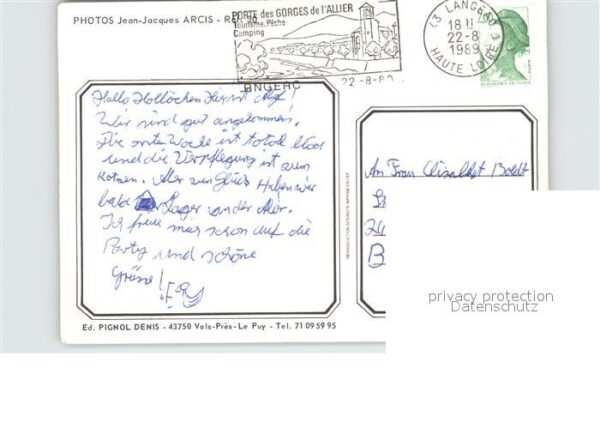 PHOTOS Jean-Jacques ARCIS - R
PORTE des GORGES de l'ALLIER
Tourisme, Pêche
Camping
22-8-89
43 LANGEAC
18 H
22-8
1989
HAUTE LOIRE
2,00
Hallo
Wir sind gut angekommen.
Die erste Woche ist total blöd
und die Verpflegung ist zum
Kotzen. Aber zum Glück haben wir
bald Lager an der
Ich freue mich schon auf die
Party und schöne
Grüsse!
REPRODUCTION INTERDITE
An Frau Elisabhet Boldt
24
B
Ed. PIGNOL DENIS - 43750 Vals-Près-Le Puy - Tel. 71 09 59 95
privacy protection
Datenschutz